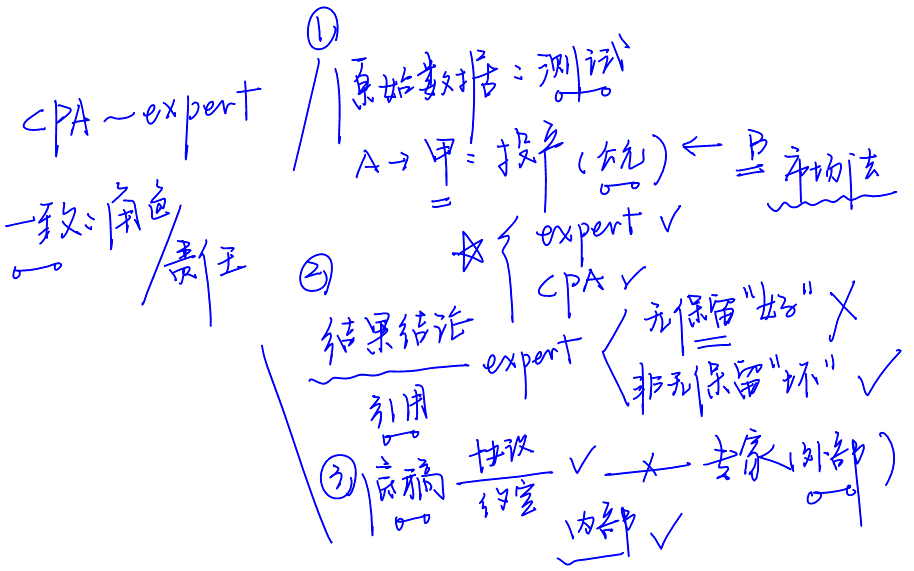 CPA ~ expert
一致：角色/责任
① 原始数据：测试
A → 甲：投产（公允）← B 市场法
☆ { expert ✓
CPA ✓
② 结果结论 expert < 无保留"好" ✗
引用 非无保留"坏" ✓
③ 底稿 协议 ✓ —×— 专家（外部）
约定
内部 ✓